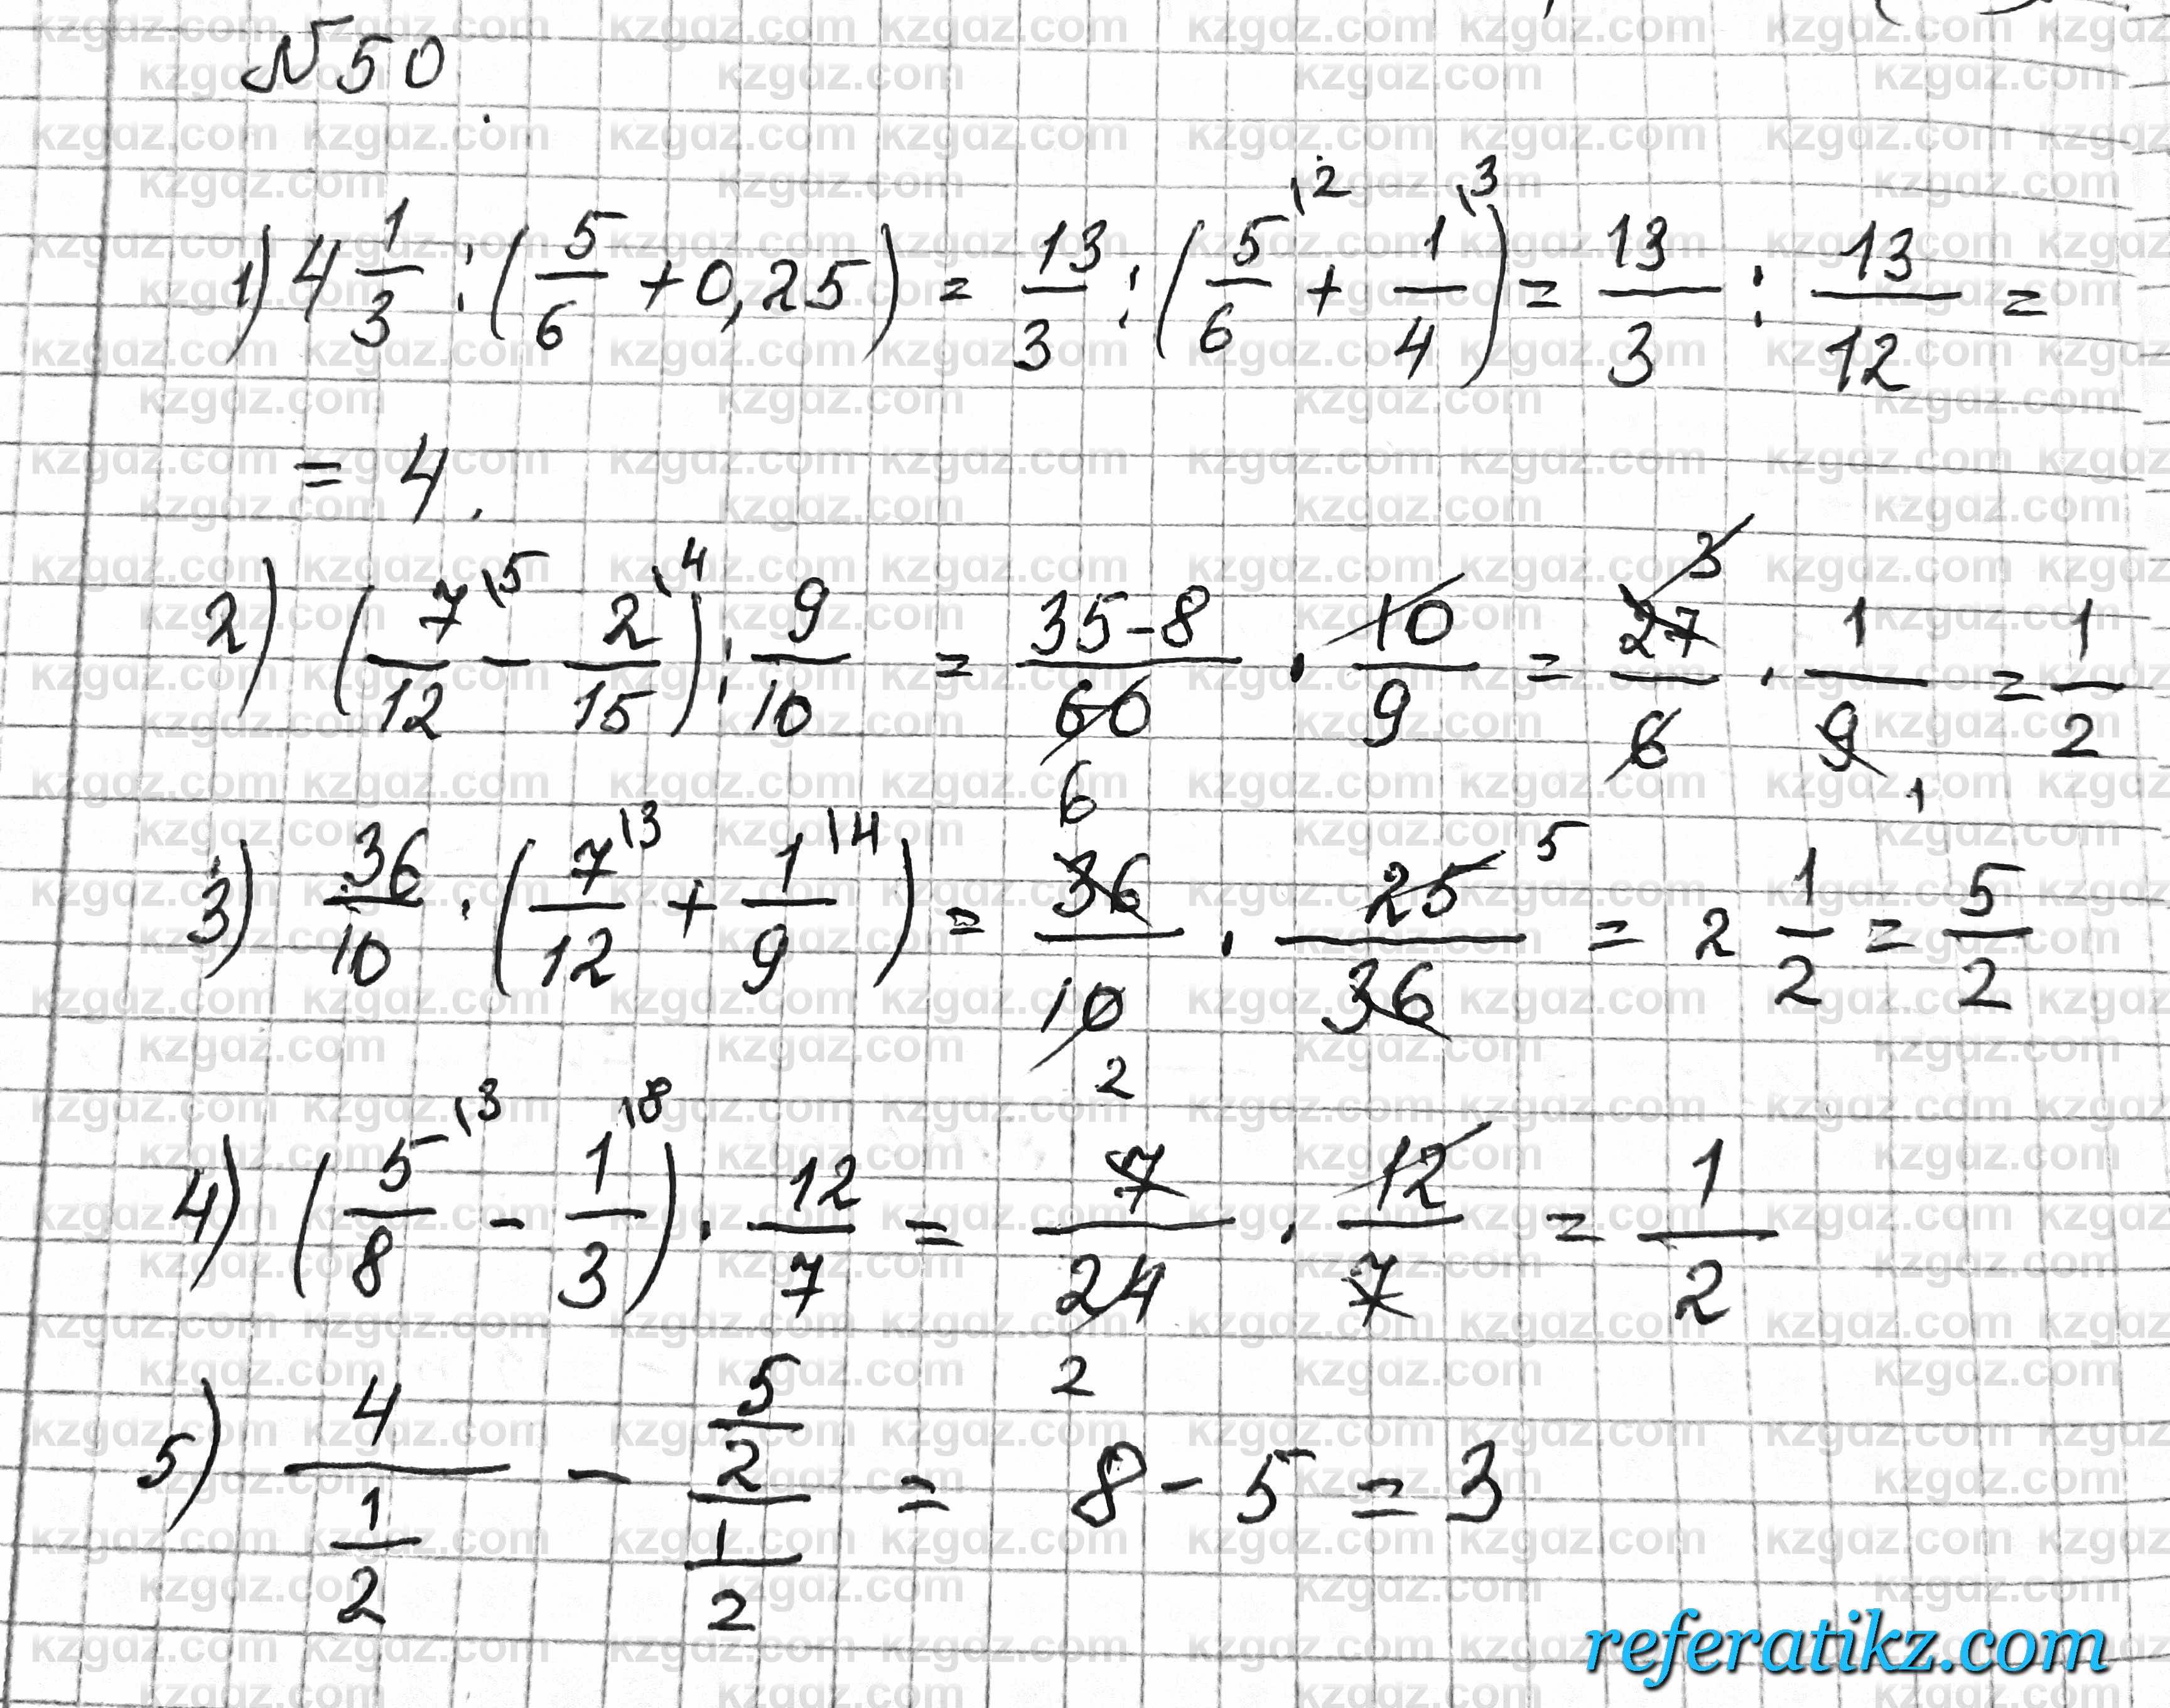 №50.
1) 4 1/3 : (5/6 + 0,25) = 13/3 : (5/6 \2 + 1/4 \3) = 13/3 : 13/12 =
= 4.
2) (7/12 \5 - 2/15 \4) : 9/10 = 35-8/60 6 · 10/9 = 27 3/6 · 1/9 1 = 1/2
3) 36/10 · (7/12 \3 + 1/9 \4) = 36/10 2 · 25 5/36 = 2 1/2 = 5/2
4) (5/8 \3 - 1/3 \8) · 12/7 = 7/24 2 · 12/7 = 1/2
5) 4/(1/2) - (5/2)/(1/2) = 8 - 5 = 3
referatikz.com